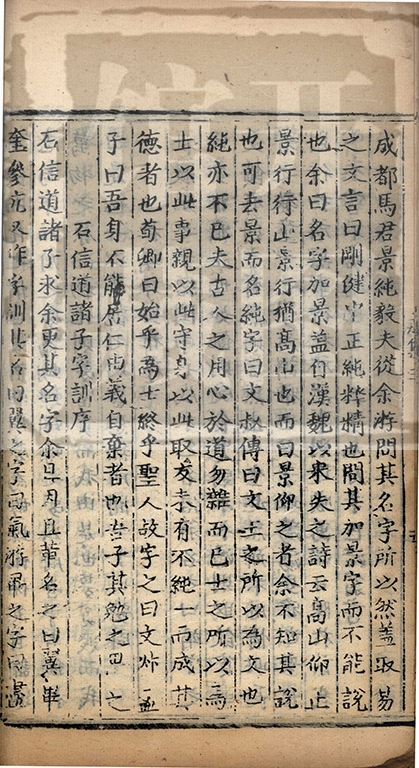 成都馬君景純毅夫從余游問其名字所以然蓋取易
之文言曰剛健中正純粹精也問其加景字而不能說
也余曰名字加景蓋自漢魏以來失之詩云高山仰止
景行行止景行猶高山也而曰景仰之者余不知其說
也可去景而名純字曰文叔傳曰文王之所以為文也
純亦不已夫古人之用心於道勿雜而已士之所以為
士以此事親以此守身以此取友未有不純一而成其
德者也荀卿曰始乎為士終乎聖人故字之曰文叔孟
子曰吾身不能居仁由義自棄者也君子其勉之思之
石信道諸子字訓序
石信道諸子求余更其名字余以且葦名之曰翼畢
奎參元又作字訓其名曰翼之字曰氣游畢之字曰